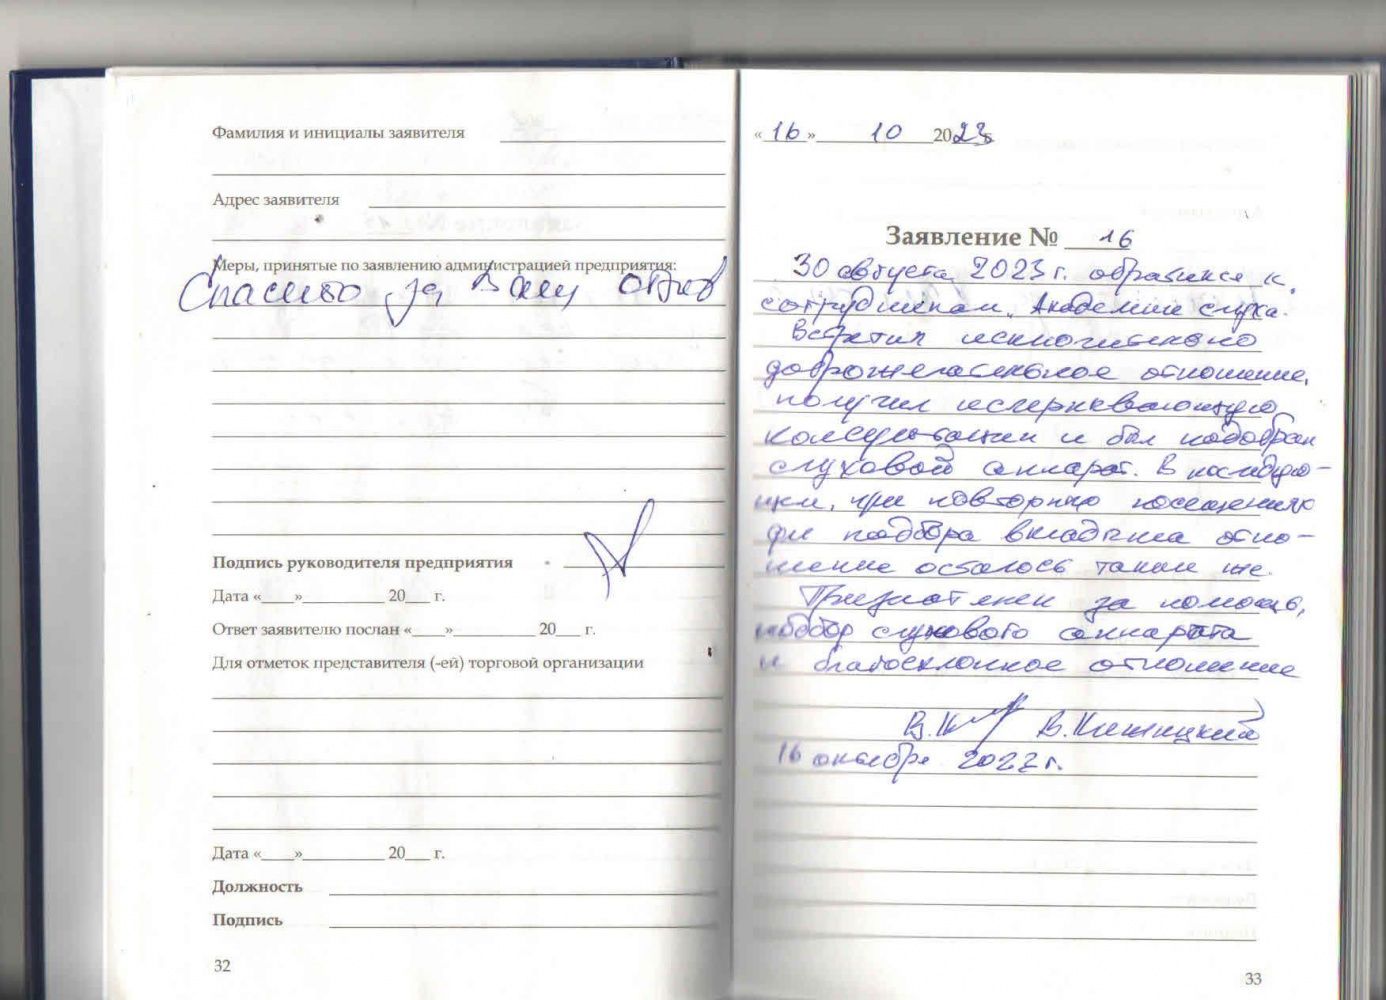 Фамилия и инициалы заявителя
Адрес заявителя
Меры, принятые по заявлению администрацией предприятия:
Спасибо за Ваш отзыв
Подпись руководителя предприятия
Дата «____»__________ 20___ г.
Ответ заявителю послан «____»__________ 20___ г.
Для отметок представителя (-ей) торговой организации
Дата «____»__________ 20___ г.
Должность
Подпись
32
«16» 10 2023
Заявление № 16
30 августа 2023 г. обратился к
сотрудникам "Академии слуха.
Встретил исключительно
доброжелательное отношение,
получил исчерпывающую
консультацию и был подобран
слуховой аппарат. В последую-
щем, при повторном посещении
для подбора вкладыша отно-
шение осталось таким же.
Признателен за помощь,
подбор слухового аппарата
и благосклонное отношение
16 октября 2023 г.
33